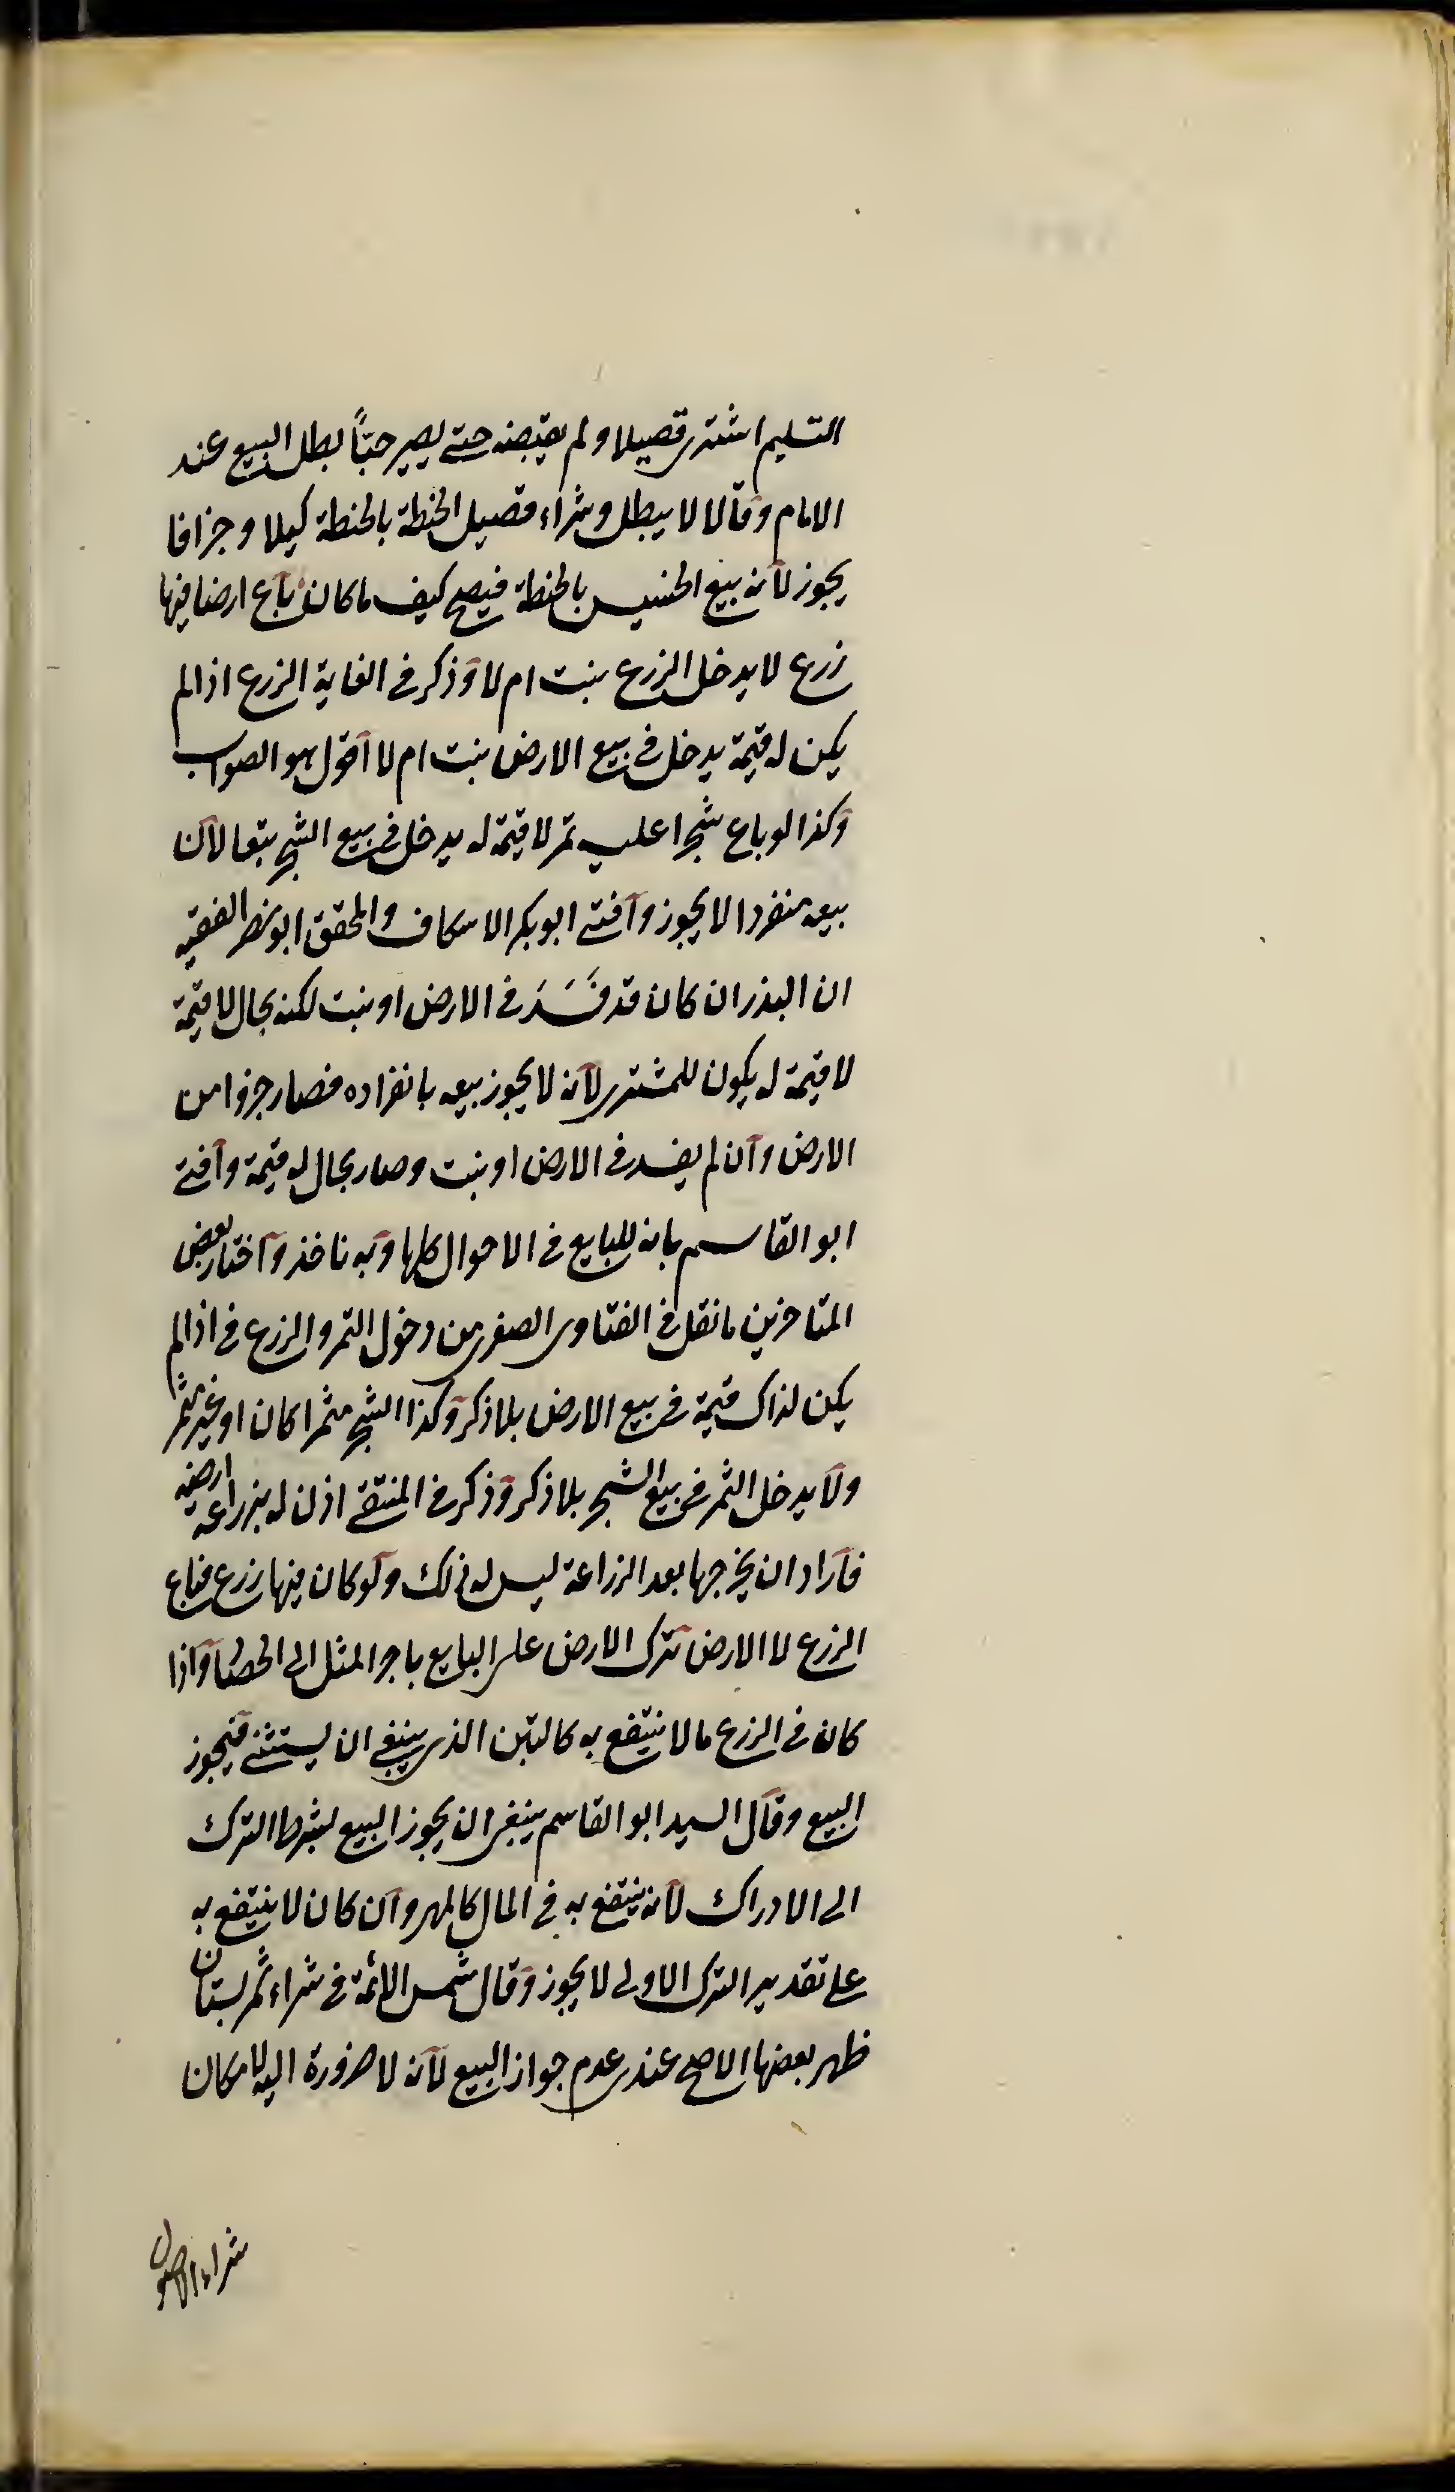 التسليم اشترى قصيلا ولم يقبضه حتى يصير حبّاً بطل البيع عند
الامام وقالا لا يبطل وشراء قصيل الحنطة بالحنطة كيلا وجزافا
يجوز لأنه بيع الحشيش بالحنطة فيصح كيف ما كان باع ارضا فيها
زرع لا يدخل الزرع نبت ام لا وذكر فى الغاية الزرع اذا لم
يكن له قيمة يدخل فى بيع الارض نبت ام لا اقول هو الصواب
وكذا لو باع شجرا عليه ثمر لا قيمة له يدخل فى بيع الشجر تبعا لان
بيعه منفردا لا يجوز وافتى ابو بكر الاسكاف والمحقق ابو نصر الفقيه
ان البذر ان كان قد فَسَدَ فى الارض او نبت لكنه بحال لا قيمة
لا قيمة له يكون للمشترى لانه لا يجوز بيعه بانفراده فصار جزوا من
الارض وان لم يفسد فى الارض او نبت وصار بحال له قيمة وافتى
ابو القاسم بانه للبايع فى الاحوال كلها وبه ناخذ واختار بعض
المتاخرين ما نقل فى الفتاوى الصغرى من دخول الثمر والزرع فى اذا لم
يكن لذاك قيمة فى بيع الارض بلا ذكر وكذا الشجر مثمرا كان او غير مثمر
ولا يدخل الثمر فى بيع الشجر بلا ذكر وذكر فى المنتقى اذن له بزراعة ارضه
فاراد ان يخرجها بعد الزراعة ليس له ذلك ولو كان فيها زرع فباع
الزرع لا الارض تترك الارض على البايع باجر المثل الى الحصاد واذا
كان فى الزرع ما لا ينتفع به كالتبن الذى ينبغى ان يستثنى فيجوز
البيع وقال السيد ابو القاسم ينبغى ان يجوز البيع بشرط الترك
الى الادراك لانه ينتفع به فى المال كالمهر وان كان لا ينتفع به
على تقدير الترك الاولى لا يجوز وقال شمس الائمة فى شراء ثمر بستان
ظهر بعضها الاصح عندى عدم جواز البيع لانه لا ضرورة اليه لامكان
شراء الاصول